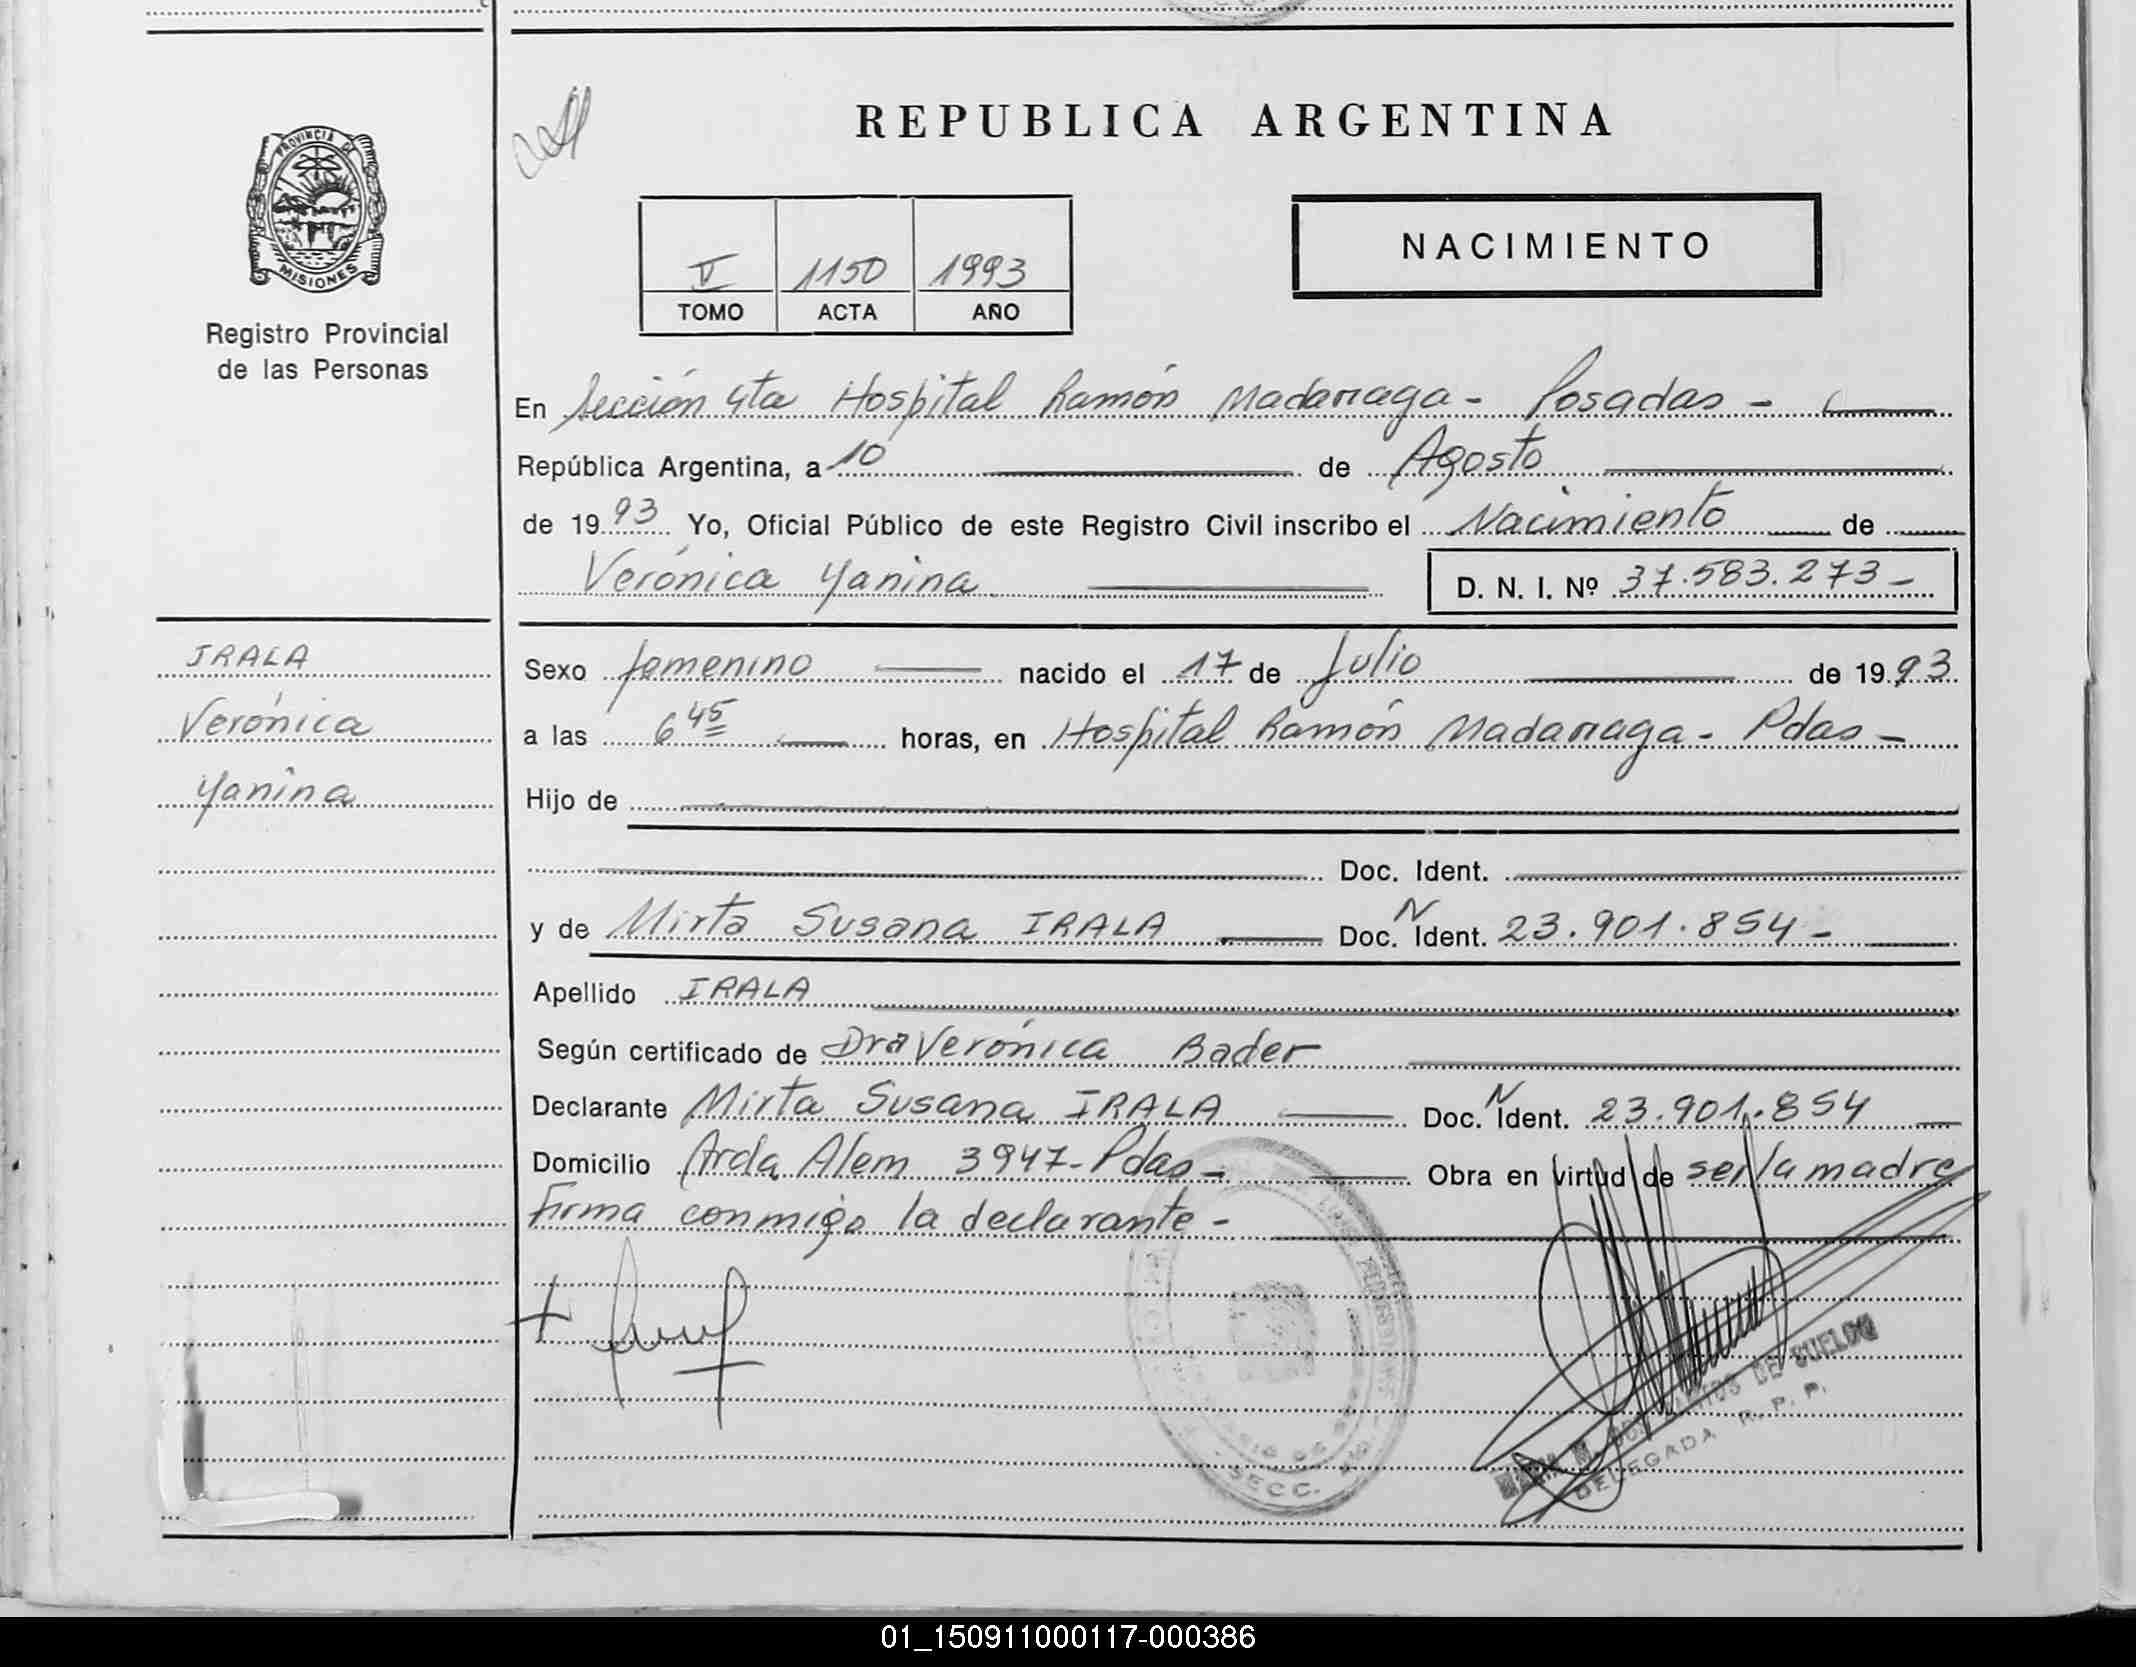 REPUBLICA ARGENTINA
PROVINCIA DE
MISIONES
Registro Provincial
de las Personas
V 1150 1993
TOMO ACTA AÑO
NACIMIENTO
En Sección 4ta Hospital Ramón Madariaga - Posadas -
República Argentina, a 10 de Agosto
de 19 93 Yo, Oficial Público de este Registro Civil inscribo el Nacimiento de
Verónica Yanina D. N. I. Nº 37.583.273-
IRALA
Verónica
Yanina
Sexo femenino nacido el 17 de Julio de 19 93
a las 6 45 horas, en Hospital Ramón Madariaga - Pdas -
Hijo de
Doc. Ident.
y de Mirta Susana IRALA Doc. N Ident. 23.901.854-
Apellido IRALA
Según certificado de Dra Verónica Bader
Declarante Mirta Susana IRALA Doc. N Ident. 23.901.854
Domicilio Avda Alem 3947-Pdas- Obra en virtud de ser la madre
Firma conmigo la declarante-
SECC.
DE SUELDO
DELEGADA R. P. P.
01_150911000117-000386